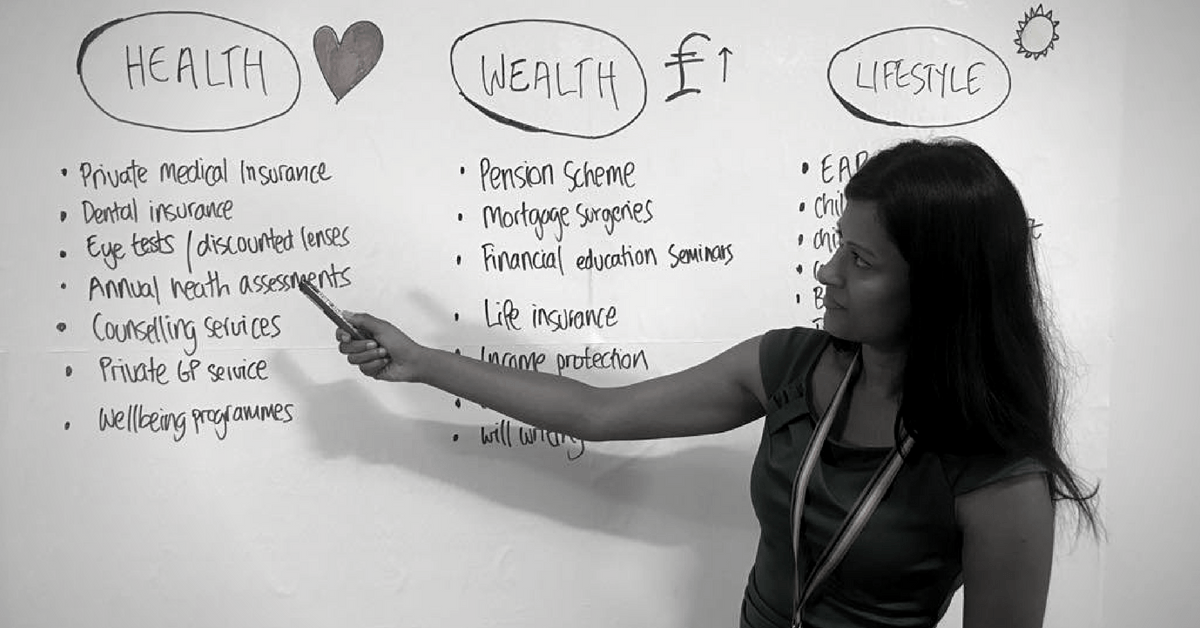 HEALTH
• Private Medical Insurance
• Dental insurance
• Eye tests / discounted lenses
• Annual heath assessments
• Counselling services
• Private GP service
• Wellbeing programmes
WEALTH £ ↑
• Pension Scheme
• Mortgage Surgeries
• Financial education Seminars
• Life insurance
• Income protection
• Will writing
LIFESTYLE